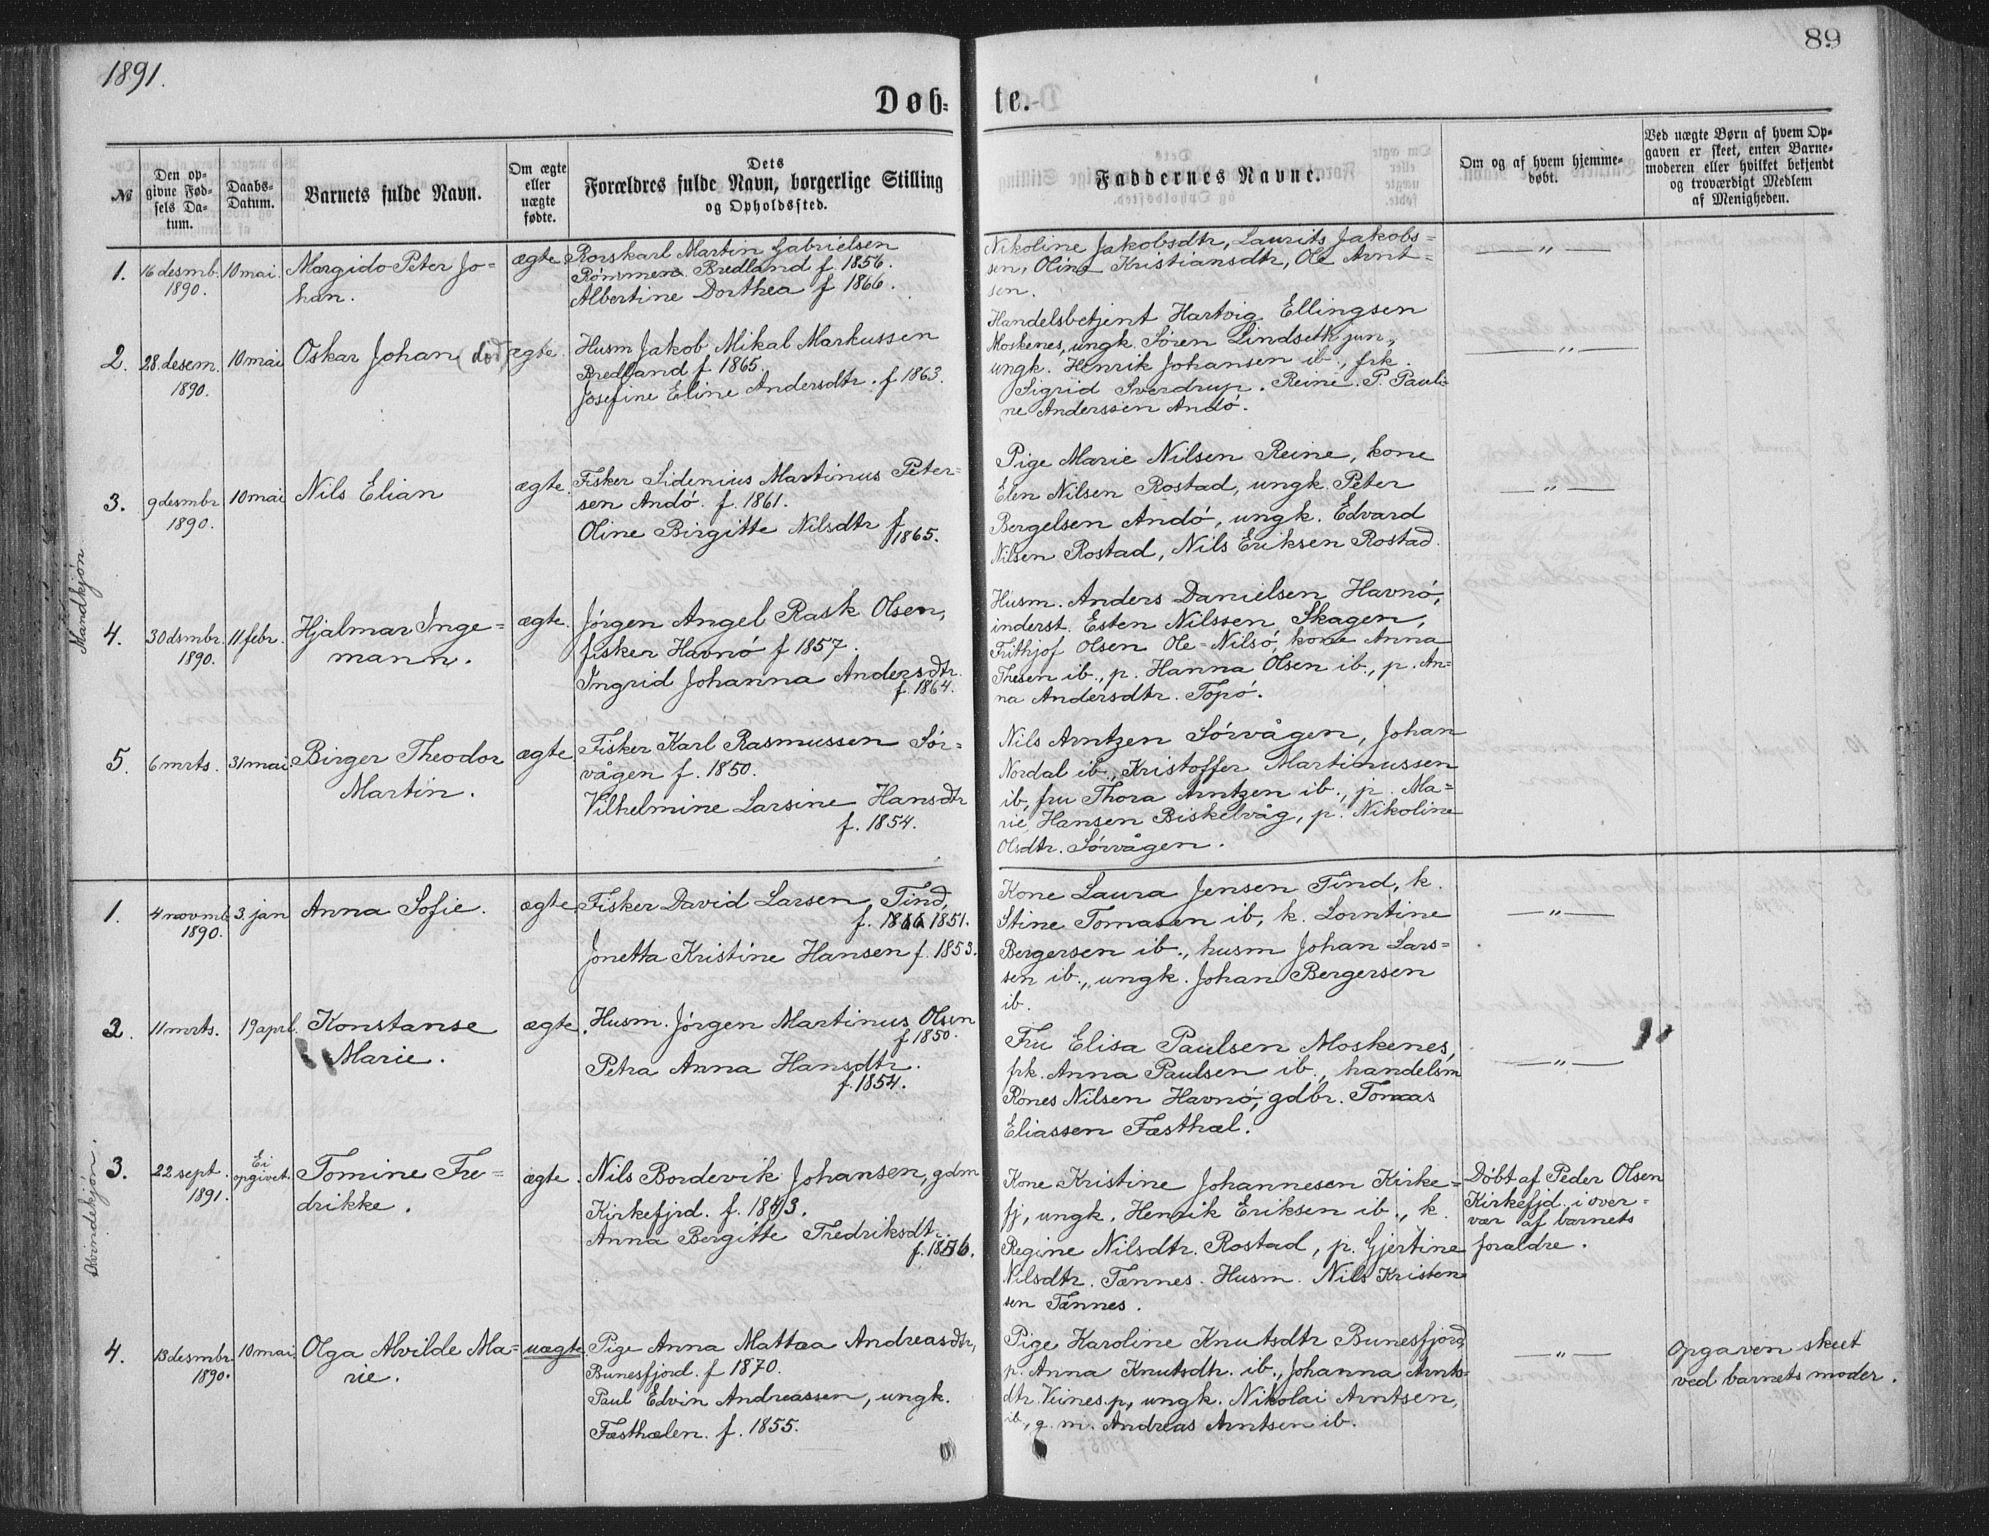 1891.
89
Døb-te.
№
Den op-
givne Fød-
sels Da-
tum.
Daabs-
Datum.
Barnets fulde Navn.
Om ægte
eller
uægte
fødte.
Dets
Forældres fulde Navn, borgerlige Stilling
og Opholdssted.
Faddernes Navne.
Om og af hvem hjemme-
døbt.
Ved uægte Børn af hvem Op-
gaven er skeet, enten Barne-
moderen eller hvilket bekjendt
og troværdigt Medlem
af Menigheden.
Mandkjøn.
1.
16 desmb.
1890.
10 mai
Margido Peter Jo-
han.
ægte
Rorskarl Martin Gabrielsen
Bredland f. 1856.
Albertine Dorthea f 1866.
Nikoline Jakobsdtr, Laurits Jakobs-
sen, Oline Kristiansdtr, Ole Arnt-
sen.
—"—
2.
28. desem.
1890.
10 mai
Oskar Johan (død)
ægte.
Husm Jakob Mikal Markussen
Bredland f 1865
Josefine Eline Andersdtr. f 1863.
Handelsbetjent Hartvig Ellingsen
Moskenes, ungk. Sören Lindseth jun.,
ungk. Henrik Johansen ib., frk.
Sigrid Sverdrup. Reine. P. Pauli-
ne Anderssen Andö.
—"—
3.
9 desmbr
1890.
10 mai
Nils Elian
ægte.
Fisker Sidenius Martinus Peter-
sen Andö. f. 1861.
Oline Birgitte Nilsdtr f
1865.
Pige Marie Nilsen Reine, kone
Elen Nilsen Rostad, ungk. Peter
Bergelsen Andö, ungk. Edvard
Nilsen Rostad, Nils Eriksen Rostad.
—"—
4.
30 dsmbr.
1890.
11 febr.
Hjalmar Inge-
mann.
ægte.
Jørgen Angel Rask Olsen,
fisker Havnö f 1857.
Ingrid Johanna Andersdtr.
f. 1864.
Husm. Anders Danielsen Havnö,
inderst. Esten Nilssen Skagen,
Frithjof Olsen Ole-Nilsö, kone Anna
Thesen ib., p. Hanna Olsen ib., p. An-
na Andersdtr. Topö.
5.
6 mrts.
31 mai.
Birger Theodor
Martin.
ægte
Fisker Karl Rasmussen Sör-
vågen f. 1850.
Vilhelmine Larsine Hansdtr
f. 1854.
Nils Arntzen Sörvågen, Johan
Nordal ib., Kristoffer Martinussen
ib, fru Thora Arntzen ib., p. Ma-
rie Hansen Biskelvåg, p. Nikoline
Olsdtr. Sörvågen.
Qvindekjøn.
1.
4 novmb.
1890.
3. jan
Anna Sofie.
ægte
Fisker David Larsen Tind,
f. 1851.
Jonetta Kristine Hansen f. 1853.
Kone Laura Jensen Tind, k.
Stine Tomasen ib, k. Lorntine
Bergersen ib., husm Johan Lars-
sen ib., ungk. Johan Bergersen
ib.
—"—
2.
11 mrts.
19 april.
Konstanse
Marie.
ægte.
Husm. Jörgen Martinus Olsen
f 1850.
Petra Anna Hansdtr.
f. 1854.
Fru Elisa Paulsen Moskenes,
frk. Anna Paulsen ib., handelsm
Rönes Nilsen Havnö, gdbr. Tomas
Eliassen Fæsthæl.
—"—
3.
22 sept.
1891.
Ei
opgivet.
Tomine Fre-
drikke.
ægte.
Nils Bordevik Johansen, gdm
Kirkefjrd. f.
Anna Bergitte Fredriksdtr.
f.
Kone Kristine Johannesen Kirke-
fj, ungk. Henrik Eriksen ib., k.
Regine Nilsdtr. Rostad, p. Gjertine
Nilsdtr. Tennes. Husm. Nils Kristen
sen Tennes.
Döbt af Peder Olsen
Kirkefjd. i over-
vær af barnets
forældre.
4.
13 desmbr
1890.
10 mai
Olga Alvilde Ma-
rie.
uægte
Pige Anna Mattæa Andreasdtr,
Bunesfjord. f 1870.
Paul Edvin Andreassen, ungk.
Fæsthælen. f. 1855.
Pige Karoline Knutsdtr Bunesfjord,
p. Anna Knutsdtr. ib., Johanna Arnts-
dtr. ungk. Nikolai Arntsen,
ib, g. m. Andreas Arntsen ib.
—"—
Opgaven skeet
ved barnets moder.